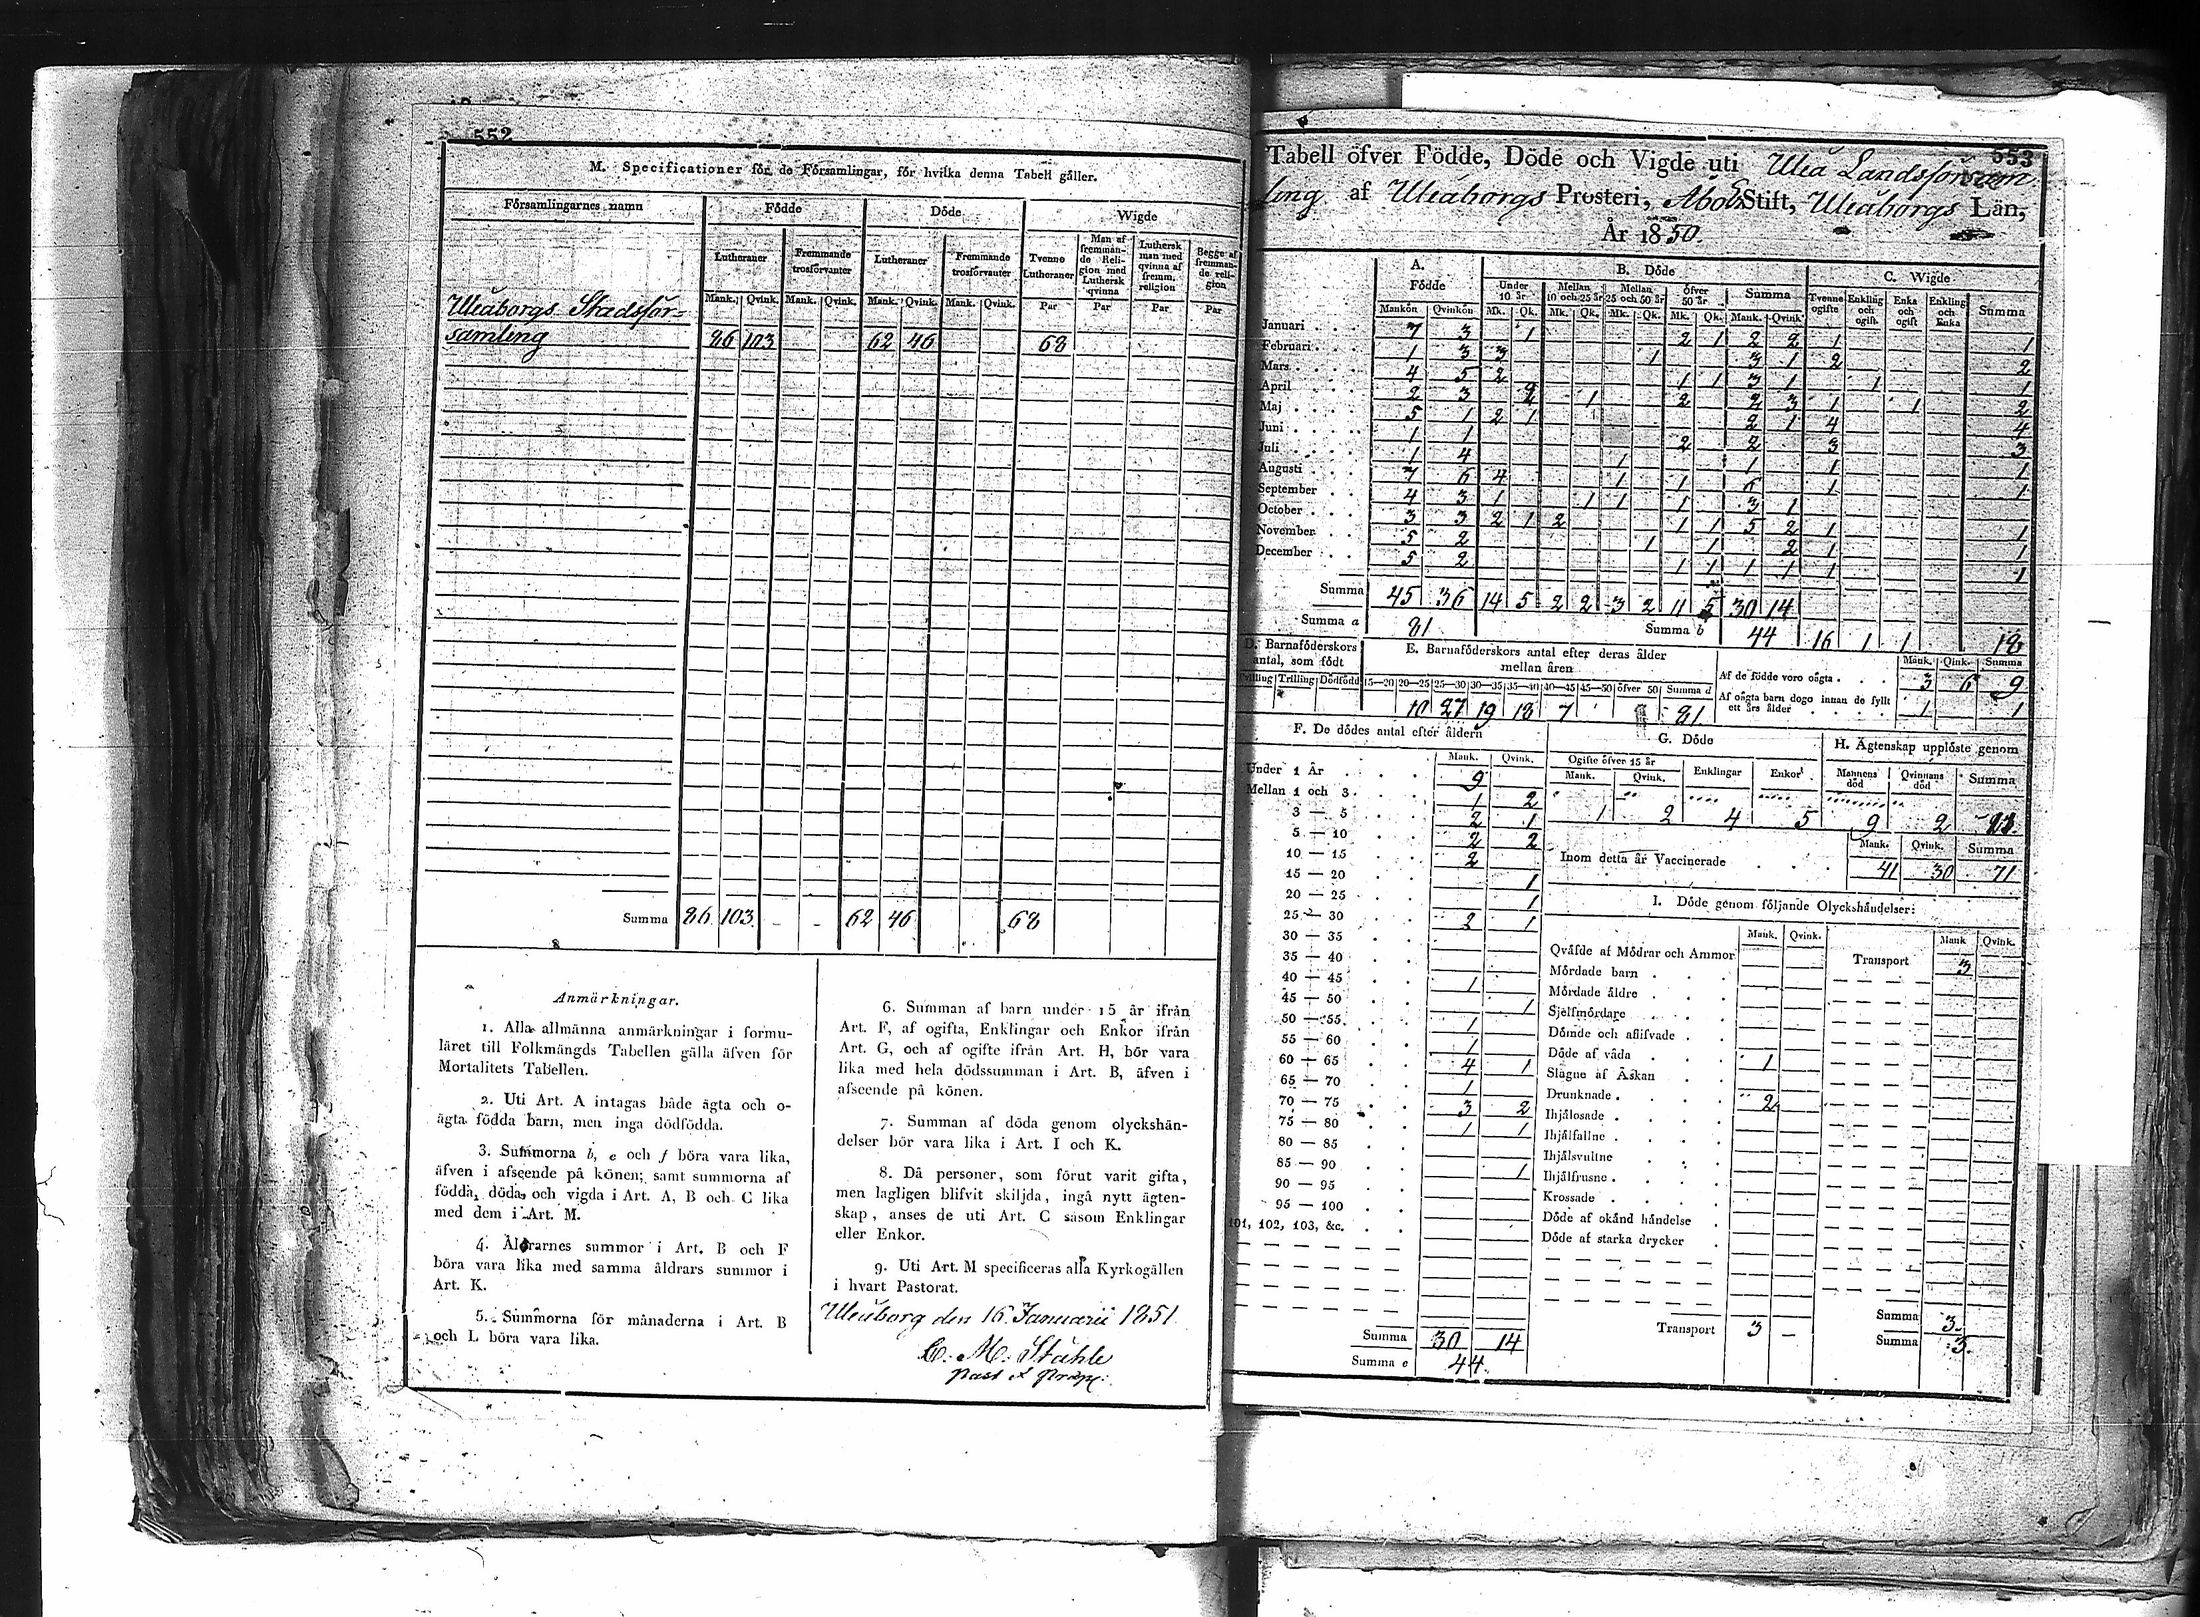 552
M. Specificationer för de Församlingar, för hvilka denna Tabell gäller.
Församlingarnes namn | Födde | Döde | Wigde
Lutheraner | Fremmande trosförvanter | Lutheraner | Fremmande trosförvanter | Tvenne Lutheraner | Man af fremmande Religion med Luthersk qvinna | Luthersk man med qvinna af fremm. religion | Begge af fremmande religion
Mank. | Qvink. | Mank. | Qvink. | Mank. | Qvink. | Mank. | Qvink. | Par | Par | Par | Par
Uleåborgs Stadsför-
samling | 86 | 103 | 62 | 46 | 68
Summa | 86 | 103 | - | - | 62 | 46 | 68
Anmärkningar.
1. Alla allmänna anmärkningar i formu-
läret till Folkmängds Tabellen gälla äfven för
Mortalitets Tabellen.
2. Uti Art. A intagas både ägta och o-
ägta födda barn, men inga dödfödda.
3. Summorna b, e och f böra vara lika,
äfven i afseende på könen; samt summorna af
födda, döda, och vigda i Art. A, B och C lika
med dem i Art. M.
4. Åldrarnes summor i Art. B och F
böra vara lika med samma åldrars summor i
Art. K.
5. Summorna för månaderna i Art. B
och L böra vara lika.
6. Summan af barn under 15 år ifrån
Art. F, af ogifta, Enklingar och Enkor ifrån
Art. G, och af ogifte ifrån Art. H, bör vara
lika med hela dödssumman i Art. B, äfven i
afseende på könen.
7. Summan af döda genom olyckshän-
delser bör vara lika i Art. I och K.
8. Då personer, som förut varit gifta,
men lagligen blifvit skiljda, ingå nytt ägten-
skap, anses de uti Art. C såsom Enklingar
eller Enkor.
9. Uti Art. M specificeras alla Kyrkogällen
i hvart Pastorat.
Uleåborg den 16 Januarii 1851
C. M. Ståhle
Past & Præp:
553
Tabell öfver Födde, Döde och Vigde uti Uleå Landsförsam
ling af Uleåborgs Prosteri, Åbo Stift, Uleåborgs Län,
År 1850.
A. Födde | B. Döde | C. Wigde
Under 10 år | Mellan 10 och 25 år | Mellan 25 och 50 år | öfver 50 år | Summa | Tvenne ogifte | Enkling och ogift | Enka och ogift | Enkling och Enka | Summa
Mankön | Qvinkön | Mk. | Qk. | Mk. | Qk. | Mk. | Qk. | Mk. | Qk. | Mank. | Qvink
Januari | 7 | 3 | 1 | 2 | 1 | 2 | 2 | 1 | 1
Februari | 1 | 3 | 3 | 1 | 3 | 1 | 2 | 2
Mars | 4 | 5 | 2 | 1 | 1 | 3 | 1 | 1 | 1
April | 2 | 3 | 2 | 1 | 2 | 2 | 3 | 1 | 1 | 2
Maj | 5 | 1 | 2 | 1 | 2 | 1 | 4 | 4
Juni | 1 | 1 | 2 | 2 | 3 | 3
Juli | 1 | 4 | 1 | 1 | 1 | 1
Augusti | 7 | 6 | 4 | 1 | 1 | 6 | 1 | 1
September | 4 | 3 | 1 | 1 | 1 | 1 | 3 | 1
October | 3 | 3 | 2 | 1 | 2 | 1 | 1 | 5 | 2 | 1 | 1
November | 5 | 2 | 1 | 1 | 2 | 1 | 1
December | 5 | 2 | 1 | 1 | 1 | 1 | 1 | 1
Summa | 45 | 36 | 14 | 5 | 2 | 2 | 3 | 2 | 11 | 5 | 30 | 14
Summa a | 81 | Summa b | 44 | 16 | 1 | 1 | 18
D. Barnaföderskors antal, som födt
Tvilling | Trilling | Dödfödd
E. Barnaföderskors antal efter deras ålder mellan åren
15—20 | 20—25 | 25—30 | 30—35 | 35—40 | 40—45 | 45—50 | öfver 50 | Summa d
10 | 27 | 19 | 18 | 7 | 81
Mank. | Qink. | Summa
Af de födde voro oägta | 3 | 6 | 9
Af oägta barn dogo innan de fyllt ett års ålder | 1 | 1
F. De dödes antal efter åldern
Mank. | Qvink.
Under 1 År | 9
Mellan 1 och 3 | 1 | 2
3 — 5 | 2 | 1
5 — 10 | 2 | 2
10 — 15 | 2
15 — 20 | 1
20 — 25 | 1
25 — 30 | 2 | 1
30 — 35
35 — 40
40 — 45 | 1
45 — 50 | 1
50 — 55 | 1
55 — 60 | 1
60 — 65 | 4 | 1
65 — 70 | 1
70 — 75 | 3 | 2
75 — 80 | 1 | 1
80 — 85
85 — 90 | 1
90 — 95
95 — 100
101, 102, 103, &c.
Summa | 30 | 14
Summa e | 44
G. Döde
Ogifte öfver 15 år | Enklingar | Enkor
Mank. | Qvink.
1 | 2 | 4 | 5
H. Ägtenskap upplöste genom
Mannens död | Qvinnans död | Summa
9 | 2 | 11
Mank. | Qvink. | Summa
Inom detta år Vaccinerade | 41 | 30 | 71
I. Döde genom följande Olyckshändelser:
Mank. | Qvink. | Mank | Qvink.
Qväfde af Mödrar och Ammor | Transport | 3
Mördade barn
Mördade äldre
Sjelfmördare
Dömde och aflifvade
Döde af våda | 1
Slagne af Åskan
Drunknade | 2
Ihjälosade
Ihjälfallne
Ihjälsvultne
Ihjälfrusne
Krossade
Döde af okänd händelse
Döde af starka drycker
Transport | 3 | - | Summa | 3
Summa | 3